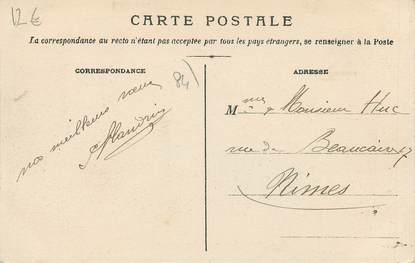 12 €
CARTE POSTALE
La correspondance au recto n'étant pas acceptée par tous les pays étrangers, se renseigner à la Poste
CORRESPONDANCE
84)
nos meilleurs vœux
ADRESSE
Mme & Monsieur Huc
rue de Beaucaire
Nîmes